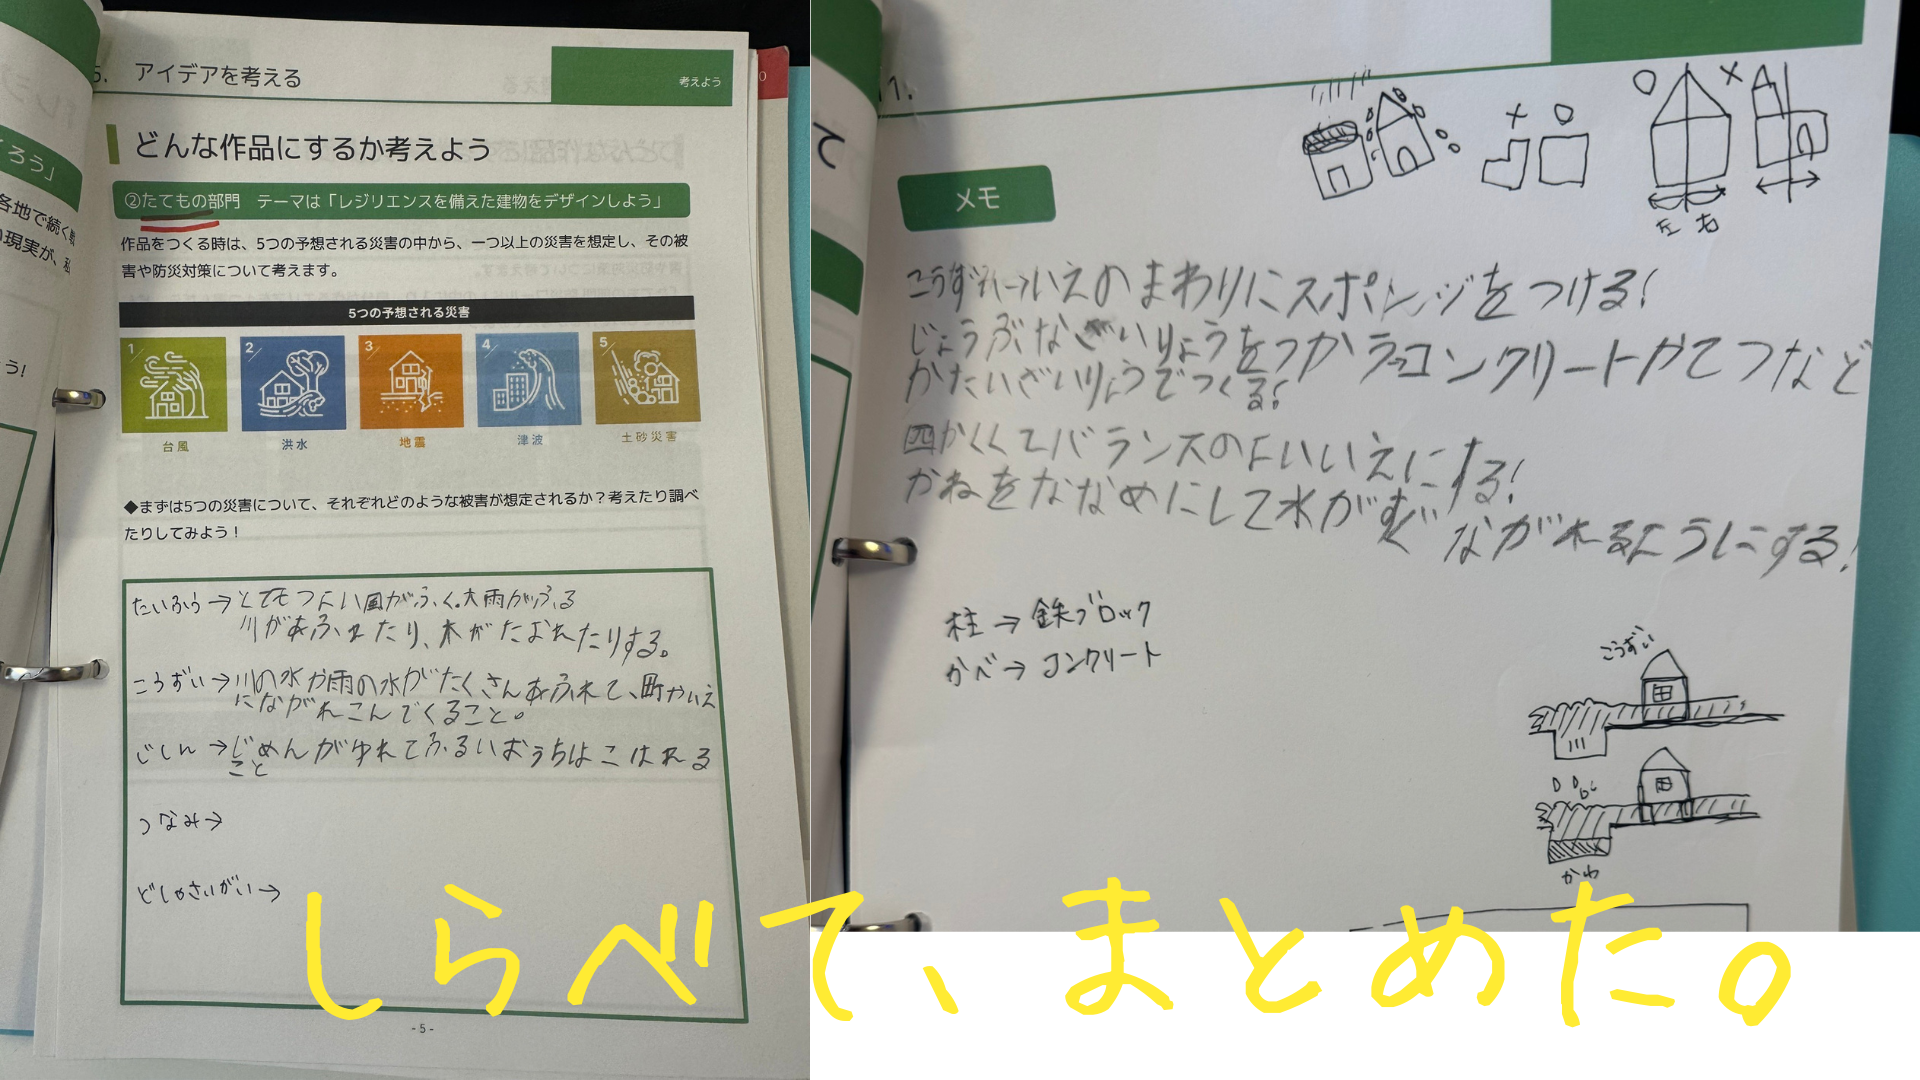 5. アイデアを考える
考えよう
どんな作品にするか考えよう
②たてもの部門 テーマは「レジリエンスを備えた建物をデザインしよう」
作品をつくる時は、5つの予想される災害の中から、一つ以上の災害を想定し、その被
害や防災対策について考えます。
5つの予想される災害
1 2 3 4 5
台風 洪水 地震 津波 土砂災害
◆まずは5つの災害について、それぞれどのような被害が想定されるか？考えたり調べ
たりしてみよう！
たいふう→とてもつよい風がふく。大雨がふる
川があふれたり、木がたおれたりする。
こうずい→川の水や雨の水がたくさんあふれて、町やいえ
にながれこんでくること。
じしん→じめんがゆれてふるいおうちはこはれる
こと
つなみ→
どしゃさいがい→
- 5 -
ろう」
各地で続く
の現実が、私
う!
0
て
1.
メモ
× ○
○ ×
左 右
こうずい→いえのまわりにスポンジをつける!
じょうぶなざいりょうをつかう→コンクリートやてつなど
かたいざいりょうでつくる!
四かくくてバランスのよいいえにする!
かねをななめにして水がすぐながれるようにする!
柱→鉄ブロック
かべ→コンクリート
こうずい
かわ
しらべて、まとめた。